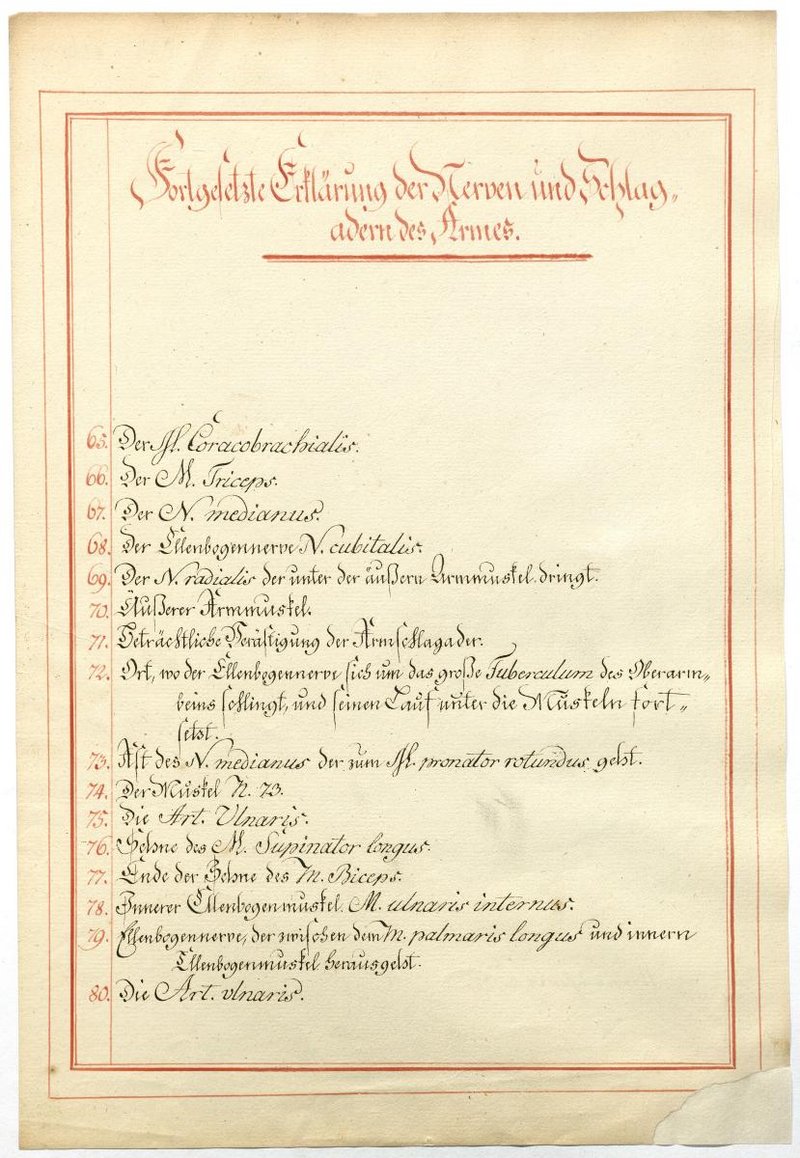 Fortgesetzte Erklärung der Nerven und Schlag„
adern des Armes.
65. Der M. Coracobrachialis.
66. Der M. Triceps.
67. Der N. medianus.
68. Der Ellenbogennerve N. cubitalis.
69. Der N. radialis der unter der äußern Armmuskel dringt.
70. Äußerer Armmuskel.
71. Beträchtliche Verästigung der Armschlagader.
72. Ort, wo der Ellenbogennerve sich um das große Tuberculum des Oberarm„
beins schlingt, und seinen Lauf unter die Muskeln fort„
setzt.
73. Ast des N. medianus der zum M. pronator rotundus geht.
74. Der Muskel N. 73.
75. Die Art. Ulnaris.
76. Sehne des M. Supinator longus.
77. Ende der Sehne des M. Biceps.
78. Innerer Ellenbogenmuskel M. ulnaris internus.
79. Ellenbogennerve, der zwischen dem M. palmaris longus und innern
Ellenbogenmuskel herausgeht.
80. Die Art. vlnaris.